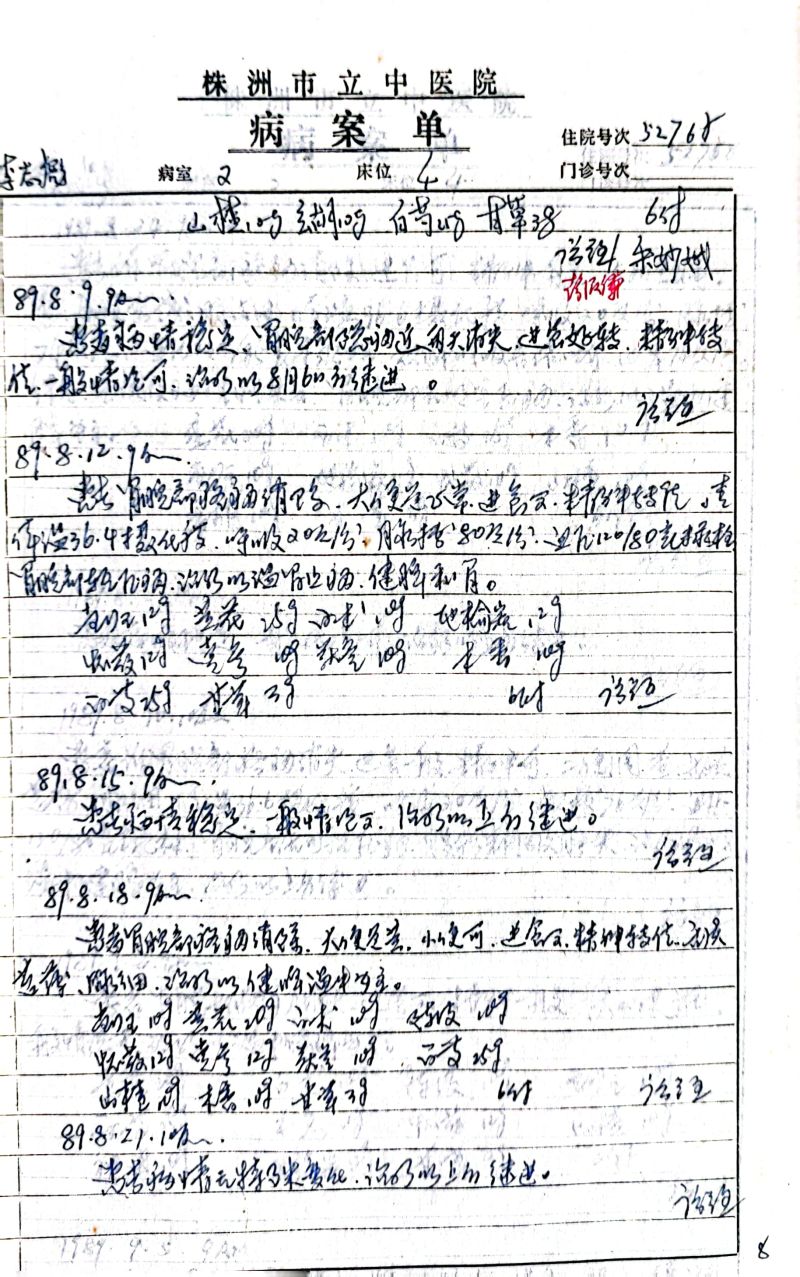 株洲市立中医院
病案单
住院号次 52768
病室 2 床位 4 门诊号次
山楂10g 元胡10g 白芍15g 甘草3g 6付
89.8.9.9Am.
患者病情稳定,胃脘部隐痛近两天消失,进食好转,精神转
佳,一般情况可,治疗以8月6日方继进。
89.8.12.9Am.
患者胃脘部隐痛消除,大便正常,进食可,精神转佳,查
体温36.4摄氏度,呼吸20次/分,脉搏80次/分,血压120/80毫米汞柱
胃脘部轻压痛,治疗以温胃止痛,健脾和胃。
12g 黄芪25g 白术10g 地榆炭12g
12g 党参10g 茯苓10g 木香10g
白芨25g 甘草3g 6付
89.8.15.9Am.
患者病情稳定,一般情况可,治疗以上方继进。
89.8.18.9Am.
患者胃脘部隐痛消除,大便正常,小便可,进食可,精神转佳,舌淡
脉细,治疗以健脾温中为主。
10g 黄芪20g 白术10g 陈皮10g
12g 党参12g 茯苓10g 白芨25g
山楂10g 木香10g 甘草3g 6付
89.8.21.10Am.
患者病情无特殊变化,治疗以上方继进。
8